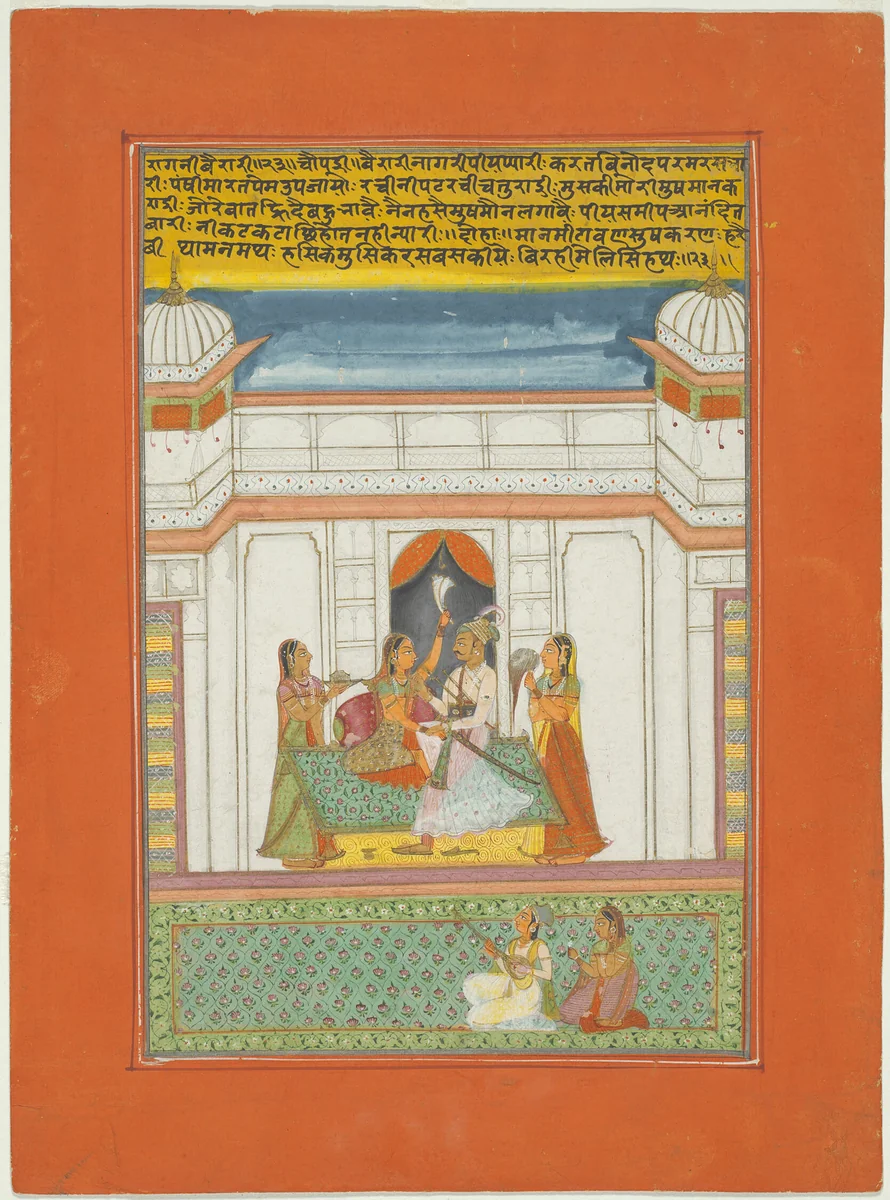 रागनीबैरारी॥२३॥चौपड़ी॥बैरारीनागरीपीयप्यारी: करतबिनोदपरमरस
री: पंषीमारतपेमउपजायौ: रचीनीपटरचीचतुराड़ी: मुसकीमोरीमुषमानक
राड़ी: जोरेबात नैनहसैमुषमौनलगावै: पीयसमीप आनंदित
बारी: नीकटकटाछिहोतनहीन्यारी:॥दोहा:॥मानमीटावणसुषकरण: हरै
बी थामनमथ: हसिकेमुसिकेरसबसकीये: बिरहीमेलिसिहथ:॥२३॥